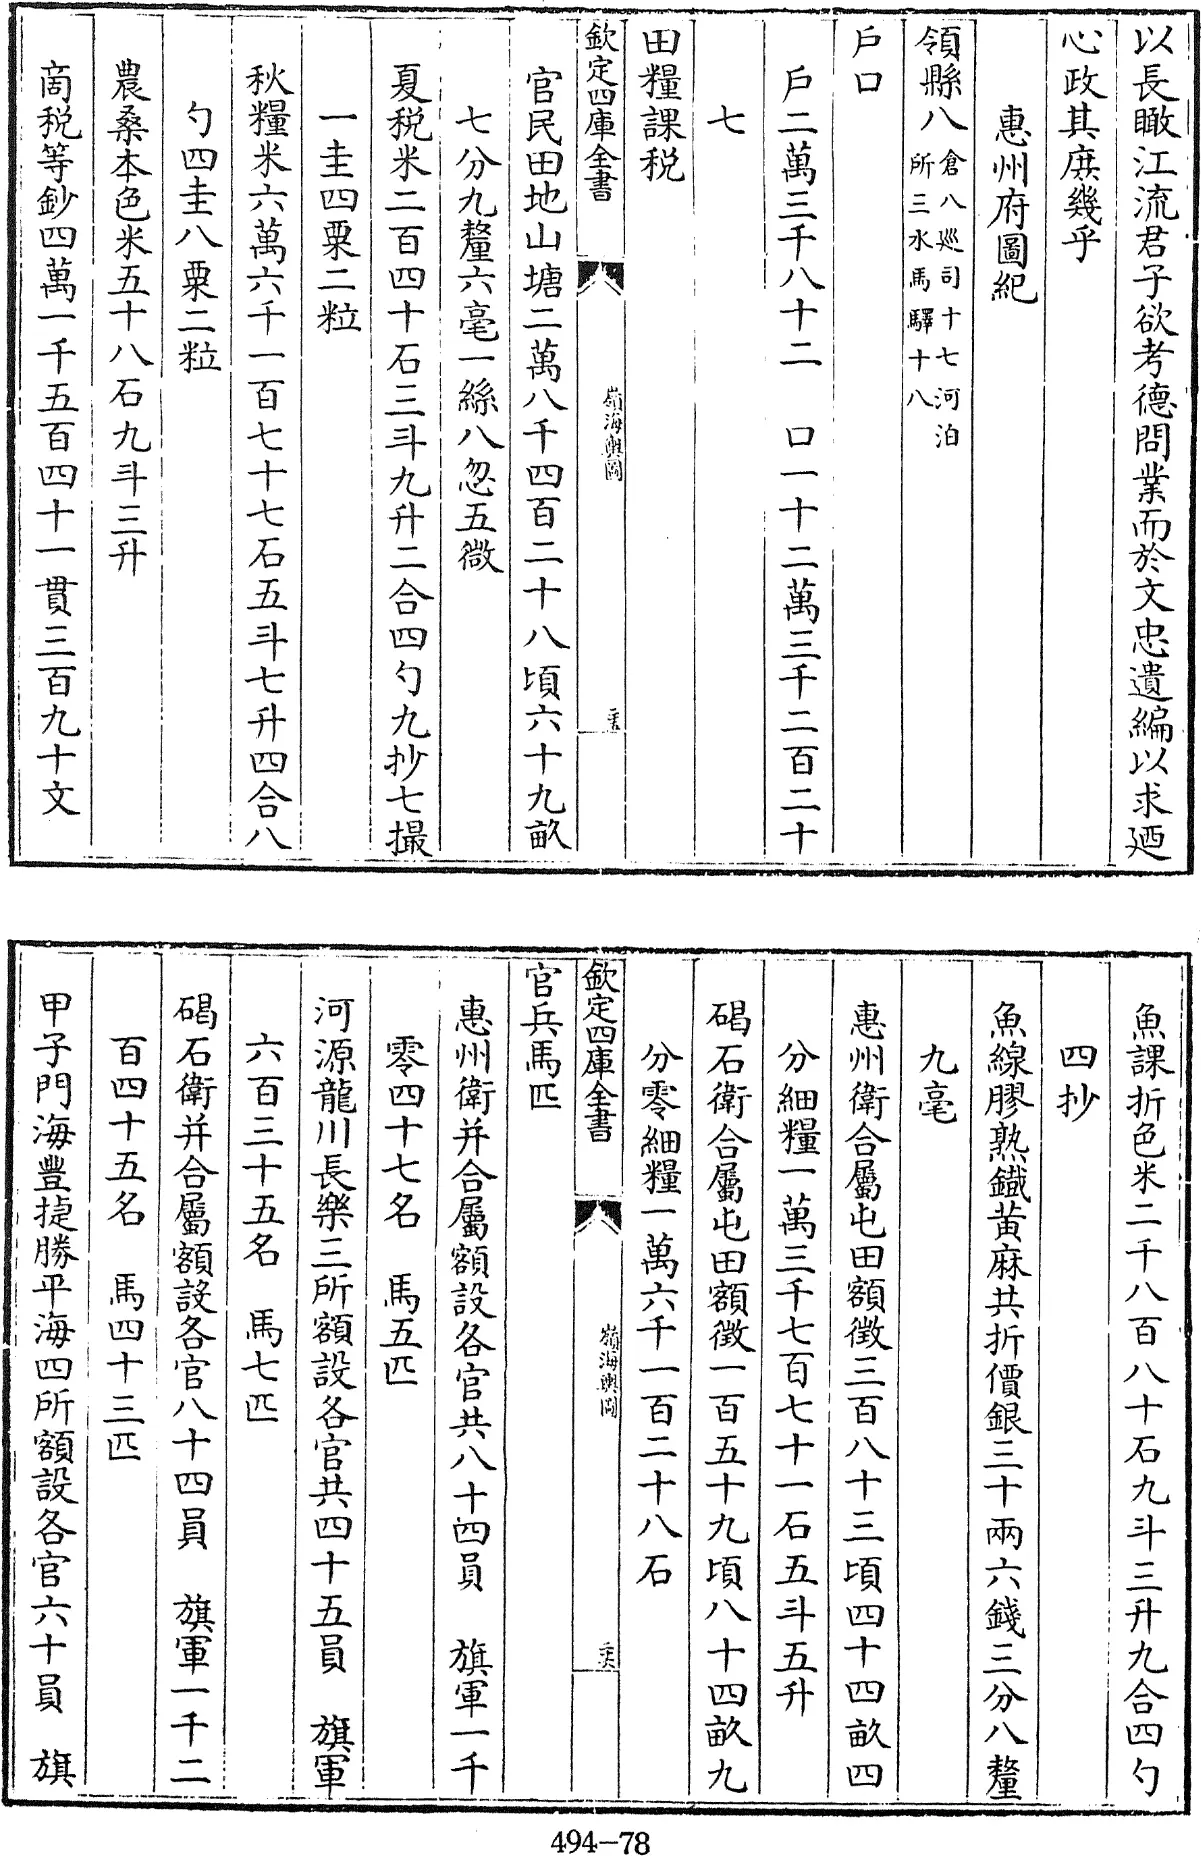 以長瞰江流君子欲考德問業而於文忠遺編以求廼
心政其庶幾乎
惠州府圖紀
領縣八倉八巡司十七河泊
所三水馬驛十八
戶口
戶二萬三千八十二 口一十二萬三千二百二十
七
田糧課稅
欽定四庫全書
嶺海輿圖
官民田地山塘二萬八千四百二十八頃六十九畝
七分九釐六毫一絲八忽五微
夏稅米二百四十石三斗九升二合四勺九抄七撮
一圭四粟二粒
秋糧米六萬六千一百七十七石五斗七升四合八
勺四圭八粟二粒
農桑本色米五十八石九斗三升
商稅等鈔四萬一千五百四十一貫三百九十文
魚課折色米二千八百八十石九斗三升九合四勺
四抄
魚線膠熟鐵黃麻共折價銀三十兩六錢三分八釐
九毫
惠州衛合屬屯田額徵三百八十三頃四十四畝四
分細糧一萬三千七百七十一石五斗五升
碣石衛合屬屯田額徵一百五十九頃八十四畝九
分零細糧一萬六千一百二十八石
欽定四庫全書
嶺海輿圖
官兵馬匹
惠州衛并合屬額設各官共八十四員 旗軍一千
零四十七名 馬五匹
河源龍川長樂三所額設各官共四十五員 旗軍
六百三十五名 馬七匹
碣石衛并合屬額設各官八十四員 旗軍一千二
百四十五名 馬四十三匹
甲子門海豐捷勝平海四所額設各官六十員 旗
494-78